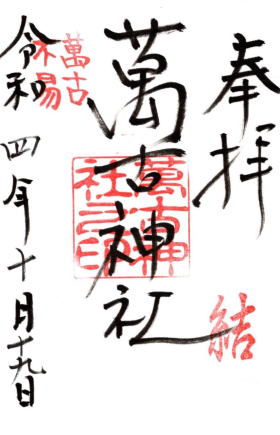 奉拝
結
萬古神社
萬古神社之印
萬古
不易
令和四年十月十九日